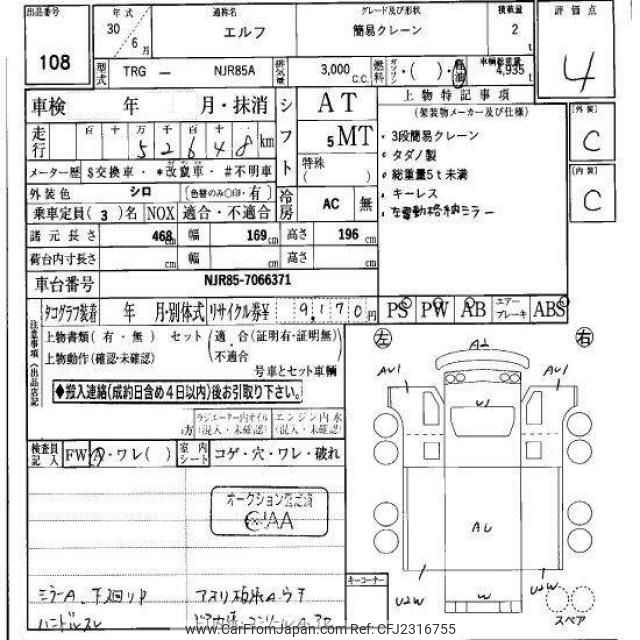 出品番号 年式 通称名 グレード及び形状 積載量 評価点
108 30 6月 エルフ 簡易クレーン 2 t 4
型式 TRG - NJR85A 排気量 3,000 C.C. 燃料 ガソリン・( )・軽油 車輌総重量 4,935 t
車検 年 月・抹消 シフト AT 5 MT 特殊 ( )
走行 百 十 万 千 百 十 52648 km
メーター歴 $交換車・*改竄車・#不明車
外装色 シロ (色替のみ○印・有) 冷房 AC 無
乗車定員( 3 )名 NOX 適合・不適合
諸元長さ 468 cm 幅 169 cm 高さ 196 cm
荷台内寸長さ cm 幅 cm 高さ cm
車台番号 NJR85-7066371
上物特記事項
(架装物メーカー及び仕様)
・3段簡易クレーン
・タダノ製
・総重量5t未満
・キーレス
・左電動格納ミラー
[外装] C
[内装] C
タコグラフ装着 年 月・別体式 リサイクル券¥ 9,170円 PS PW AB エアーブレーキ ABS
注意事項(出品店記
上物書類(有・無) セット(適合(証明有・証明無)
上物動作(確認・未確認) 不適合
号車とセット車輌
◆搬入連絡(成約日含め4日以内)後お引取り下さい。
ラジエーター内オイル エンジン内水
(混入・未確認) (混入・未確認)
検査員記入 FW A・ワレ( ) 室内シート コゲ・穴・ワレ・破れ
オークション鑑定済
CIAA
ミラーA 下廻りP
ハンドルスレ
キーコーナー
左 右
A2
AU1 AU1
U1
AU
U2W W U2W
スペア
www.CarFromJapan.com Ref: CFJ2316755